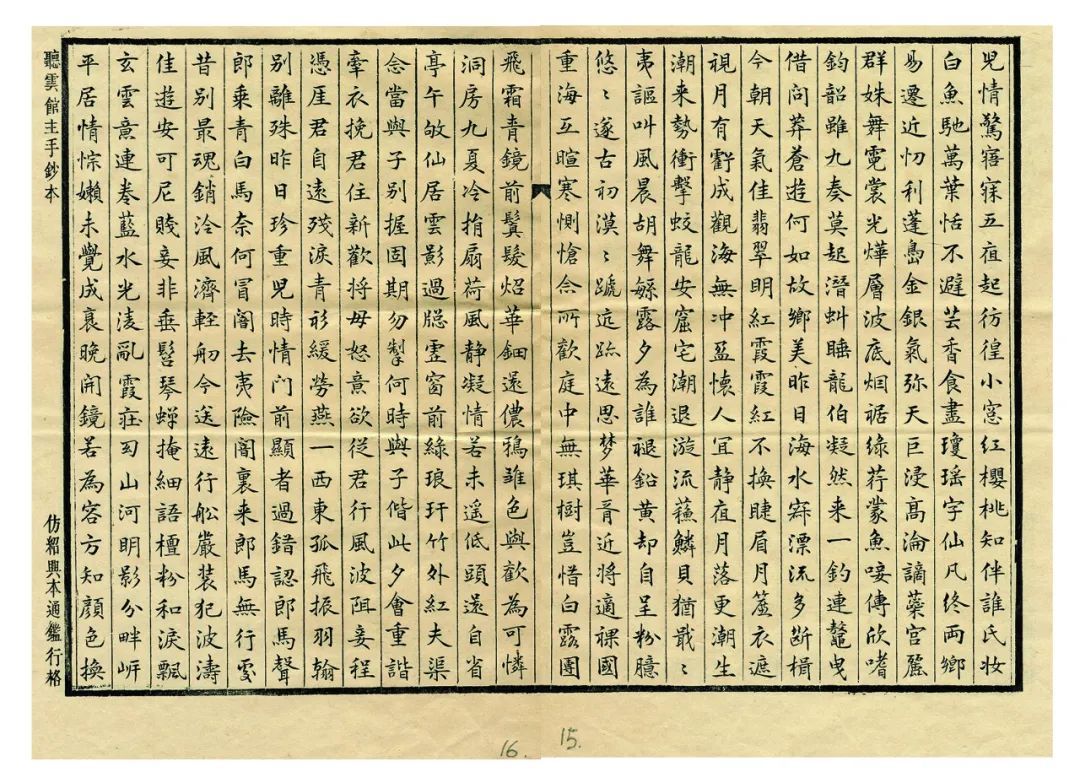 兒情驚寤寐五夜起彷徨小窓紅櫻桃知伴誰氏妝
白魚馳萬葉恬不避芸香食盡瓊瑤字仙凡終兩鄉
易遷近忉利蓬島金銀氣弥天巨浸高淪謫蘂宮麗
群姝舞霓裳光燁層波底烟裾綠荇蒙魚唼傳欣嗜
鈞韶雖九奏莫起潛虯睡龍伯凝然来一釣連鼇曳
借問莽蒼遊何如故鄉美昨日海水漂流多斷楫
今朝天氣佳翡翠明紅霞霞紅不換睫眉月衣遮
視月有虧成觀海無冲盈懷人宜静夜月落更潮生
潮来勢衝擊蛟龍安窟宅潮退漩流蘓鱗貝猶戢〻
夷謳叫風晨胡舞緐露夕為誰褪鉛黄却自呈粉臆
悠〻遂古初漠〻蹏迒跡遠思梦華胥近将適裸國
重海互暄寒惻愴念所歡庭中無琪樹豈惜白露團
飛霜青鏡前鬂髮炤華鈿還儂鴉雛色與歡為可憐
洞房九夏冷捐扇荷風静凝情若未遥低頭還自省
亭午敂仙居雲影過牎虛窗前綠琅玕竹外紅夫渠
念當與子別握固期勿掣何時與子偕此夕會重諧
牽衣挽君住新歡将毋怒意欲從君行風波阻妾程
憑厓君自遠殘淚青衫緩勞燕一西東孤飛振羽翰
別離殊昨日珍重兒時情門前顯者過錯認郎馬聲
郎乗青白馬奈何冒闇去夷險闇裏来郎馬無行處
昔別最魂銷泠風濟輕舠今送遠行舩嚴装犯波濤
佳遊安可尼賤妾非垂髫琴蟬掩細語檀粉和淚飄
玄雲竟連卷藍水光淩亂霞莊幻山河明影分畔岍
平居情悰嬾未覺成衰晚開鏡若為容方知顏色換
聽雲館主手鈔本
仿紹興本通鑑行格
16.
15.